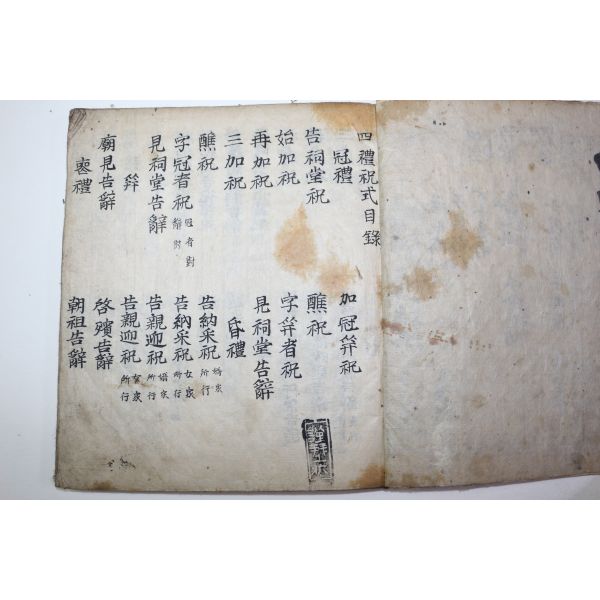 四禮祝式目錄
冠禮
告祠堂祝
始加祝
再加祝
三加祝
醮祝
字冠者祝 冠者對辭
見祠堂告辭
筓
廟見告辭
喪禮
加冠筓祝
醮祝
字筓者祝
見祠堂告辭
昏禮
告納采祝 婿家所行
告納采祝 女家所行
告親迎祝 婿家所行
告親迎祝 女家所行
啓殯告辭
朝祖告辭